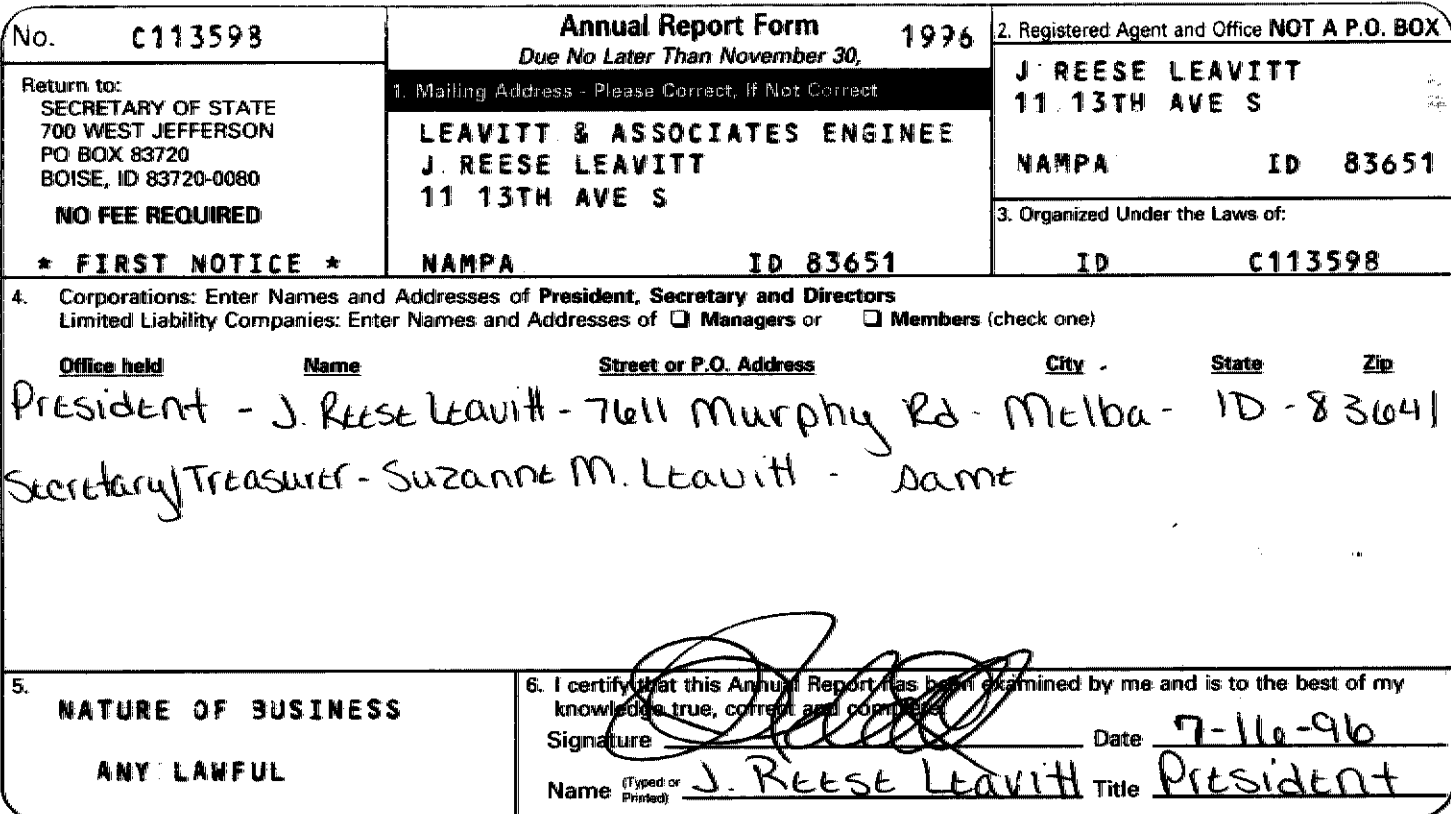 No. C113598
Annual Report Form 1996
Due No Later Than November 30,
Return to:
SECRETARY OF STATE
700 WEST JEFFERSON
PO BOX 83720
BOISE, ID 83720-0080
NO FEE REQUIRED
* FIRST NOTICE *
1. Mailing Address - Please Correct, If Not Correct
LEAVITT & ASSOCIATES ENGINEE
J. REESE LEAVITT
11 13TH AVE S
NAMPA ID 83651
2. Registered Agent and Office NOT A P.O. BOX
J REESE LEAVITT
11 13TH AVE S
NAMPA ID 83651
3. Organized Under the Laws of:
ID C113598
4. Corporations: Enter Names and Addresses of President, Secretary and Directors
Limited Liability Companies: Enter Names and Addresses of ☐ Managers or ☐ Members (check one)
Office held Name Street or P.O. Address City State Zip
President - J. Reese Leavitt - 7611 Murphy Rd - Melba - ID - 83641
Secretary/Treasurer - Suzanne M. Leavitt - Same
5. NATURE OF BUSINESS
ANY LAWFUL
6. I certify that this Annual Report has been examined by me and is to the best of my
knowledge true, correct and complete.
Signature Date 7-16-96
Name (Typed or Printed) J. Reese Leavitt Title President